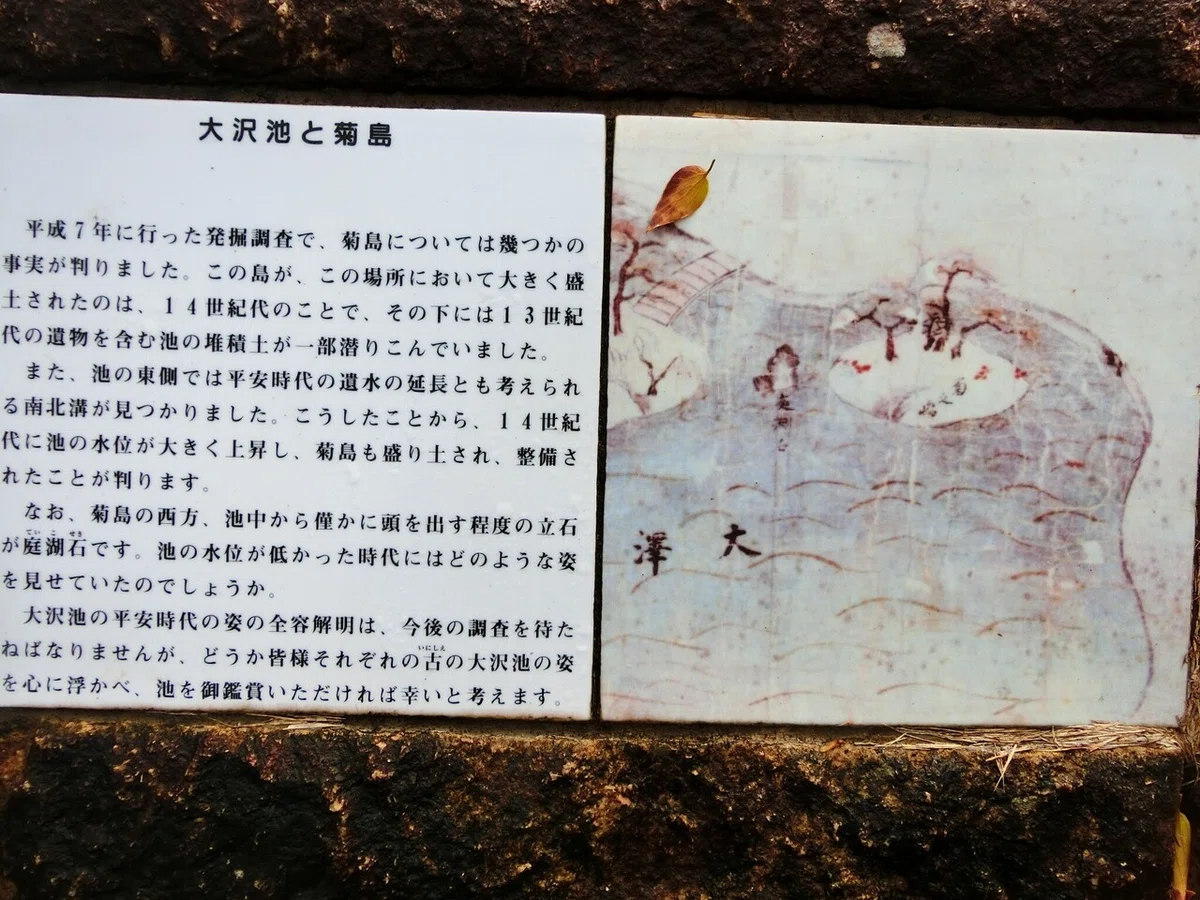 大沢池と菊島
平成7年に行った発掘調査で、菊島については幾つかの
事実が判りました。この島が、この場所において大きく盛
土されたのは、14世紀代のことで、その下には13世紀
代の遺物を含む池の堆積土が一部潜りこんでいました。
また、池の東側では平安時代の遣水の延長とも考えられ
る南北溝が見つかりました。こうしたことから、14世紀
代に池の水位が大きく上昇し、菊島も盛り土され、整備さ
れたことが判ります。
なお、菊島の西方、池中から僅かに頭を出す程度の立石
ていこせき
が庭湖石です。池の水位が低かった時代にはどのような姿
を見せていたのでしょうか。
大沢池の平安時代の姿の全容解明は、今後の調査を待た
いにしえ
ねばなりませんが、どうか皆様それぞれの古の大沢池の姿
を心に浮かべ、池を御鑑賞いただければ幸いと考えます。
大澤